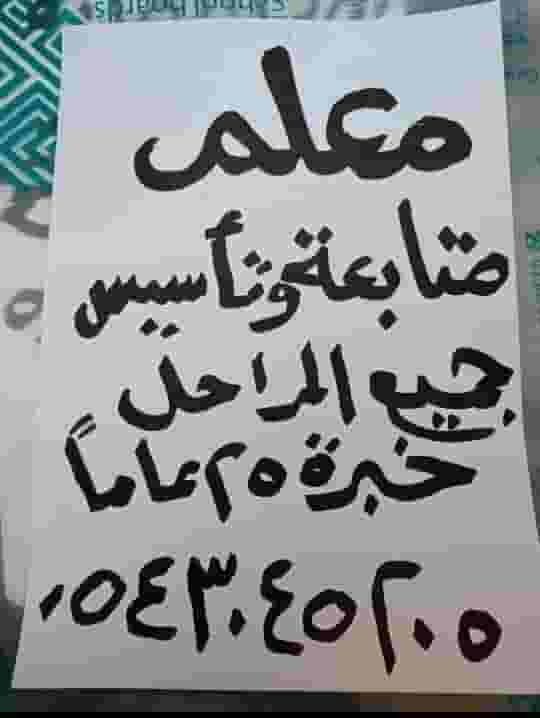 معلم
متابعة وتأسيس
جميع المراحل
خبرة ٢٥ عاماً
٠٥٤٣٠٤٥٢٠٥